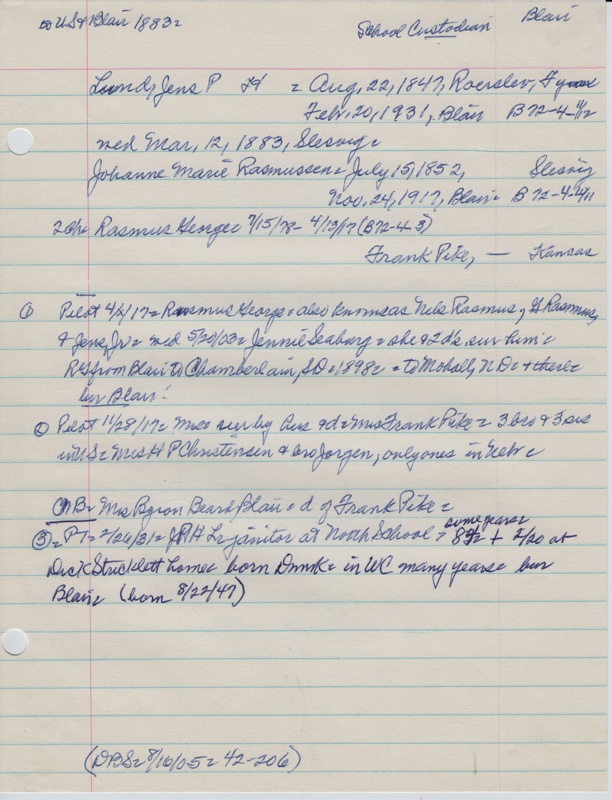 to US & Blair 1883 =
School Custodian
Blair
Lund, Jens P = Aug, 22, 1847, Roerslev, Fyn
Feb, 20, 1931, Blair B72-4-11/12
wed Mar, 12, 1883, Slesvig =
Johanne Marie Rasmussen = July 15, 1852, Slesvig
Nov, 24, 1917, Blair = B72-4-4/11
2 ch = Rasmus George = 7/15/78 - 4/12/17 (B72-4-3)
Frank Pike, — Kansas
① Pilot 4/ /17 = Rasmus George = also known as Nels Rasmus, G Rasmus,
& Jens, Jr = wed 5/20/03 = Jennie Seaburg = she & 2 d's sur him =
RG from Blair to Chamberlain, SD = 1898 = to Mohall, ND = & there =
bur Blair!
② Pilot 11/28/17 = Mrs = sur by hus & d = Mrs Frank Pike = 3 bro & 3 sis
in US = Mrs H P Christensen & bro Jorgen, only ones in Nebr =
NB = Mrs Byron Beard Blair = d of Frank Pike =
③ = PT = 2/26/31 = JPH L = janitor at North School = some years =
83 = + 2/20 at
Dick Stricklett home = born Dnmk = in WC many years = bur
Blair = (born 8/22/47)
(DBS = 8/10/05 = 42-206)